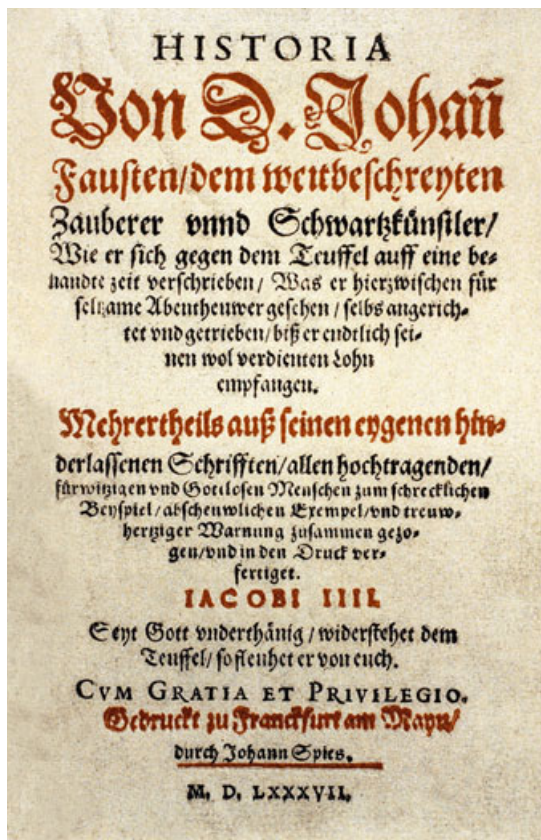 HISTORIA
Von D. Johañ
Fausten/dem weitbeschreyten
Zauberer vnnd Schwartzkünstler/
Wie er sich gegen dem Teuffel auff eine be-
nandte zeit verschrieben/ Was er hierzwischen für
seltzame Abenthewer gesehen/ selbs angerich-
tet vnd getrieben/ biß er endtlich sei-
nen wol verdienten Lohn
empfangen.
Mehrertheils auß seinen eygenen hin-
derlassenen Schrifften/allen hochtragenden/
fürwitzigen vnd Gottlosen Menschen zum schrecklichen
Beyspiel/abscheuwlichen Exempel/vnd treuw-
hertziger Warnung zusammen gezo-
gen/vnd in den Druck ver-
fertiget.
IACOBI IIII.
Seyt Gott vnderthänig/widerstehet dem
Teuffel/so fleuhet er von euch.
CVM GRATIA ET PRIVILEGIO.
Gedruckt zu Franckfurt am Mayn/
durch Johann Spies.
M. D. LXXXVII.